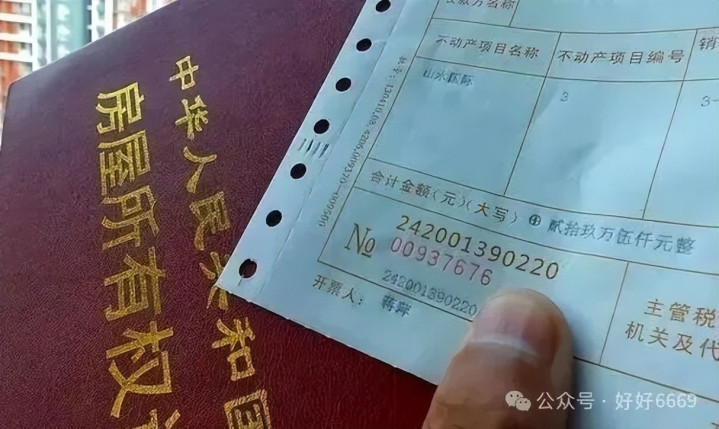 中华人民共和国
房屋所有权
收款方名称
不动产项目名称
不动产项目编号
销
山水国际
3
3-
合计金额(元)(大写) ⊕ 贰拾玖万伍仟元整
242001390220
№ 00937676
242001390220
开票人:
主管税
机关及代
公众号·好好6669